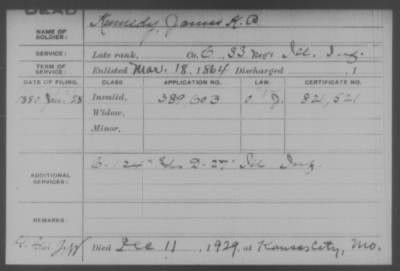 DEAD
NAME OF SOLDIER: Kennedy, James K. P.
SERVICE: Late rank, Co. C, 33 Reg't Ill. Inf.
TERM OF SERVICE: Enlisted Mar. 18, 1864 Discharged , 1
DATE OF FILING. CLASS APPLICATION NO. LAW. CERTIFICATE NO.
1880 28 Invalid, 389,603 821,521
Widow,
Minor,
ADDITIONAL SERVICES: Ill Inf
REMARKS:
Died Dec 11, 1929, at Kansas City, Mo.